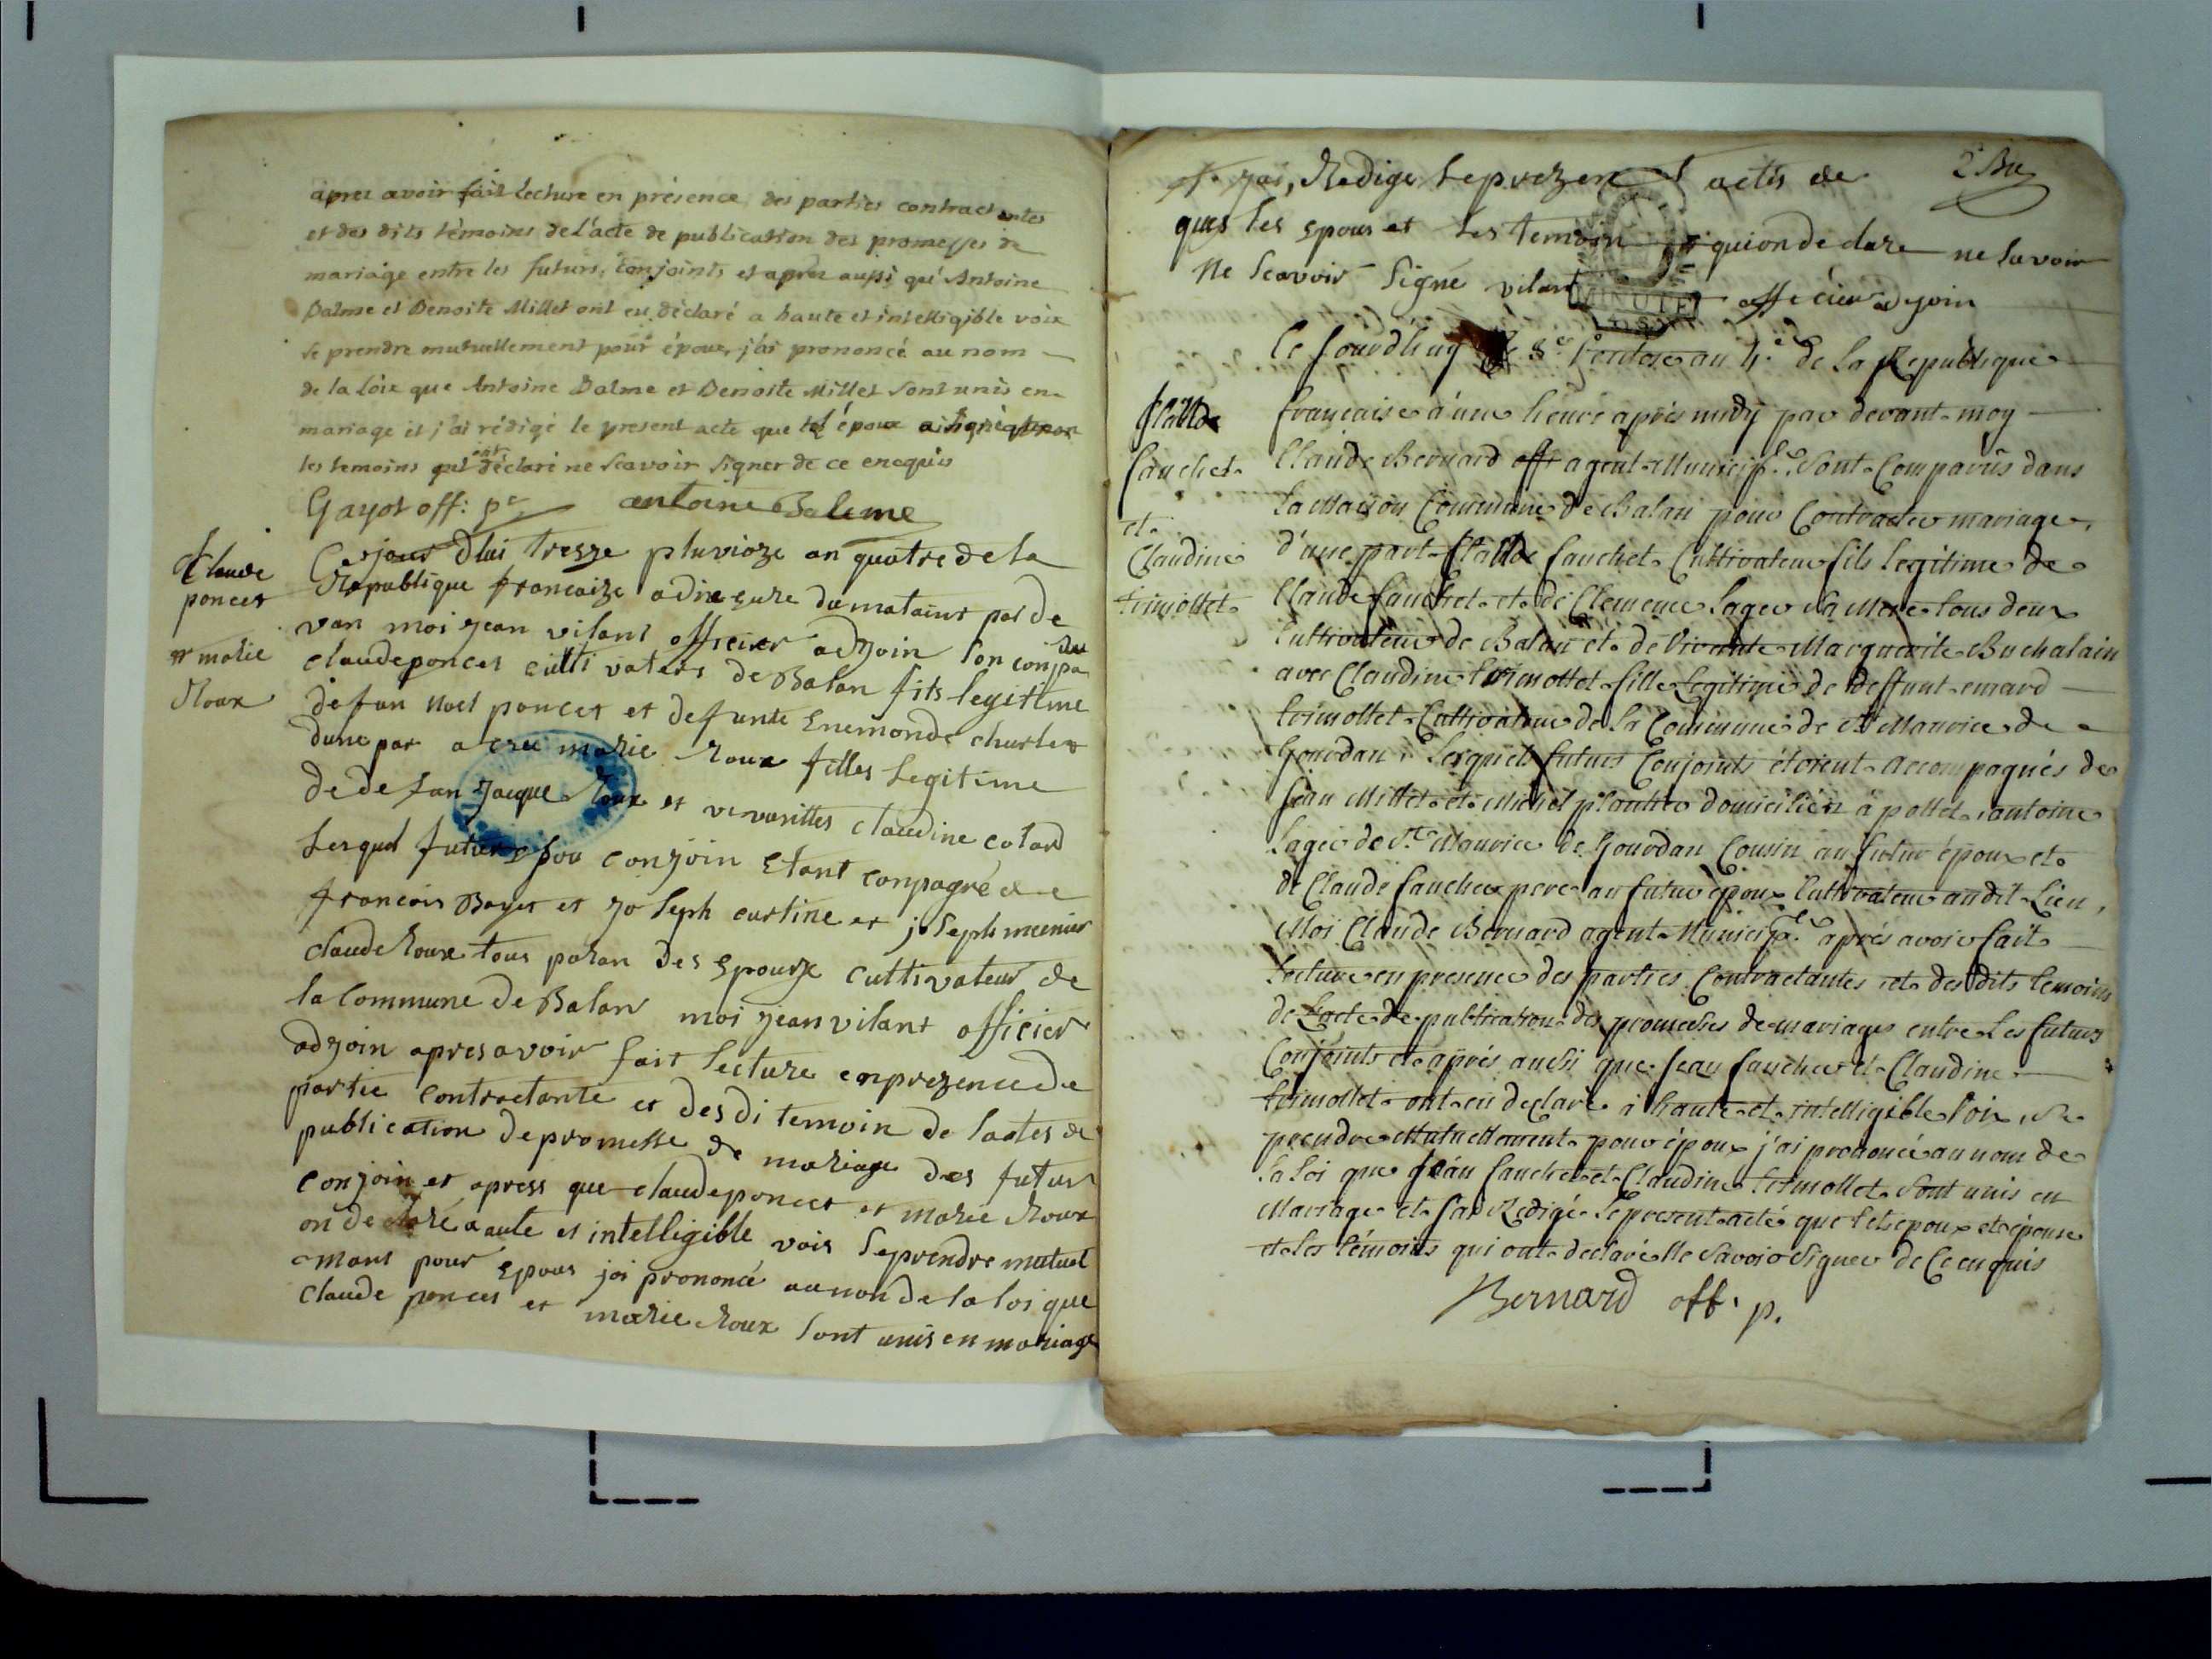 après avoir fait lecture en présence des parties contractantes
et des dits témoins de l'acte de publication des promesses de
mariage entre les futurs conjoints et après aussi que Antoine
Balme et Benoite Millet ont eu déclaré a haute et intelligible voix
se prendre mutuellement pour époux, j'ai prononcé au nom
de la loix que Antoine Balme et Benoite Millet sont unis en
mariage et j'ai rédigé le present acte que l'époux a signé
les temoins ont déclaré ne scavoir signer de ce enequis
Gayot off: p. antoine Baleme
Claude
poncet
et marie
Roux
Ce jour dhui tresze pluvioze an quatre de la
Republique francaize a dix eure du mataint par de
van moi jean vilant officier adjoin son conpa
ru
claude poncet cultivaters de Balan fits legitime
de fau Noel poncet et defunte Enemonde
dune par marie roux filles Legitime
de defan Jaque Roux et vivanttes claudine colard
Lesquel futur epou conjoin etant conpagné de
francois Boyet et joseph curtine et joseph meunier
claude Roux tous paran des epourx cultivateur de
la Commune de Balan moi jean vilant officier
adjoin apres avoir fait lecture en prezence de
partie contractante et des di temoin de lactes de
publication de promesse de mariage des futur
conjoin et apress que claude poncet et marie Roux
on declaré a aute et intelligible voix se prendre mutuel
emant pour epoux jai prononcé au non de la loi que
claude poncet et marie Roux sont unis en mariage
2. Bu
jai, Redige le prezent actes de
ques les epous et les temoin qui on declare ne savoir
Ne Scavoir Signé vilant officier adjoin
MINUTE
Ce jourdhuy 8e an 4e de la Republique
francaise à une heure après midy par devant moy
Claude
fauchet
et
Claudine
trimollet
Claude Bernard off agent Municip.l sont comparus dans
la Maison Commune de Balan pour Contracter mariage,
d'une part fauchet Cultivateur fils legitime de
Claude fauchet et de Clemence Lager sa Mere tous deux
Cultivateur de Balan et de vivante Marguerite Buchalain
avec Claudine trimollet fille Legitime de deffunt emard
trimollet Cultivateur de la Commune de St Maurice de
Gourdan, Lesquels futurs Conjoints étoient accompagnés de
jean Millet et Michel plantier domicilien à pollet, antoine
Lager de St Maurice de Gourdan Cousin au futur époux et
de Claude faucher pere au futur époux Cultivateur audit Lieu,
Moi Claude Bernard agent Municip.l après avoir fait
lecture en presence des parties Contractantes et des dits temoins
de L'acte de publication des promesses de mariages entre Les futurs
Conjoints et après aussi que jean faucher et Claudine
trimollet ont eu declaré à haute et intelligible voix, se
prendre Mutuellement pour époux j'ai prononcé au nom de
la loi que jean faucher et Claudine trimollet sont unis en
Mariage et j'ai Redigé le present acte que les epoux et épouse
et les témoins qui ont declaré Ne Savoir Signer de Ce enquis
Bernard off. p.